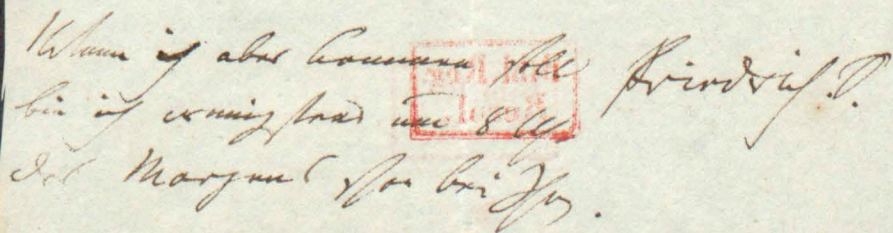 Wann ich aber kommen soll
bin ich wenigstens um 8 Uhr
des Morgens bei
Friedrich